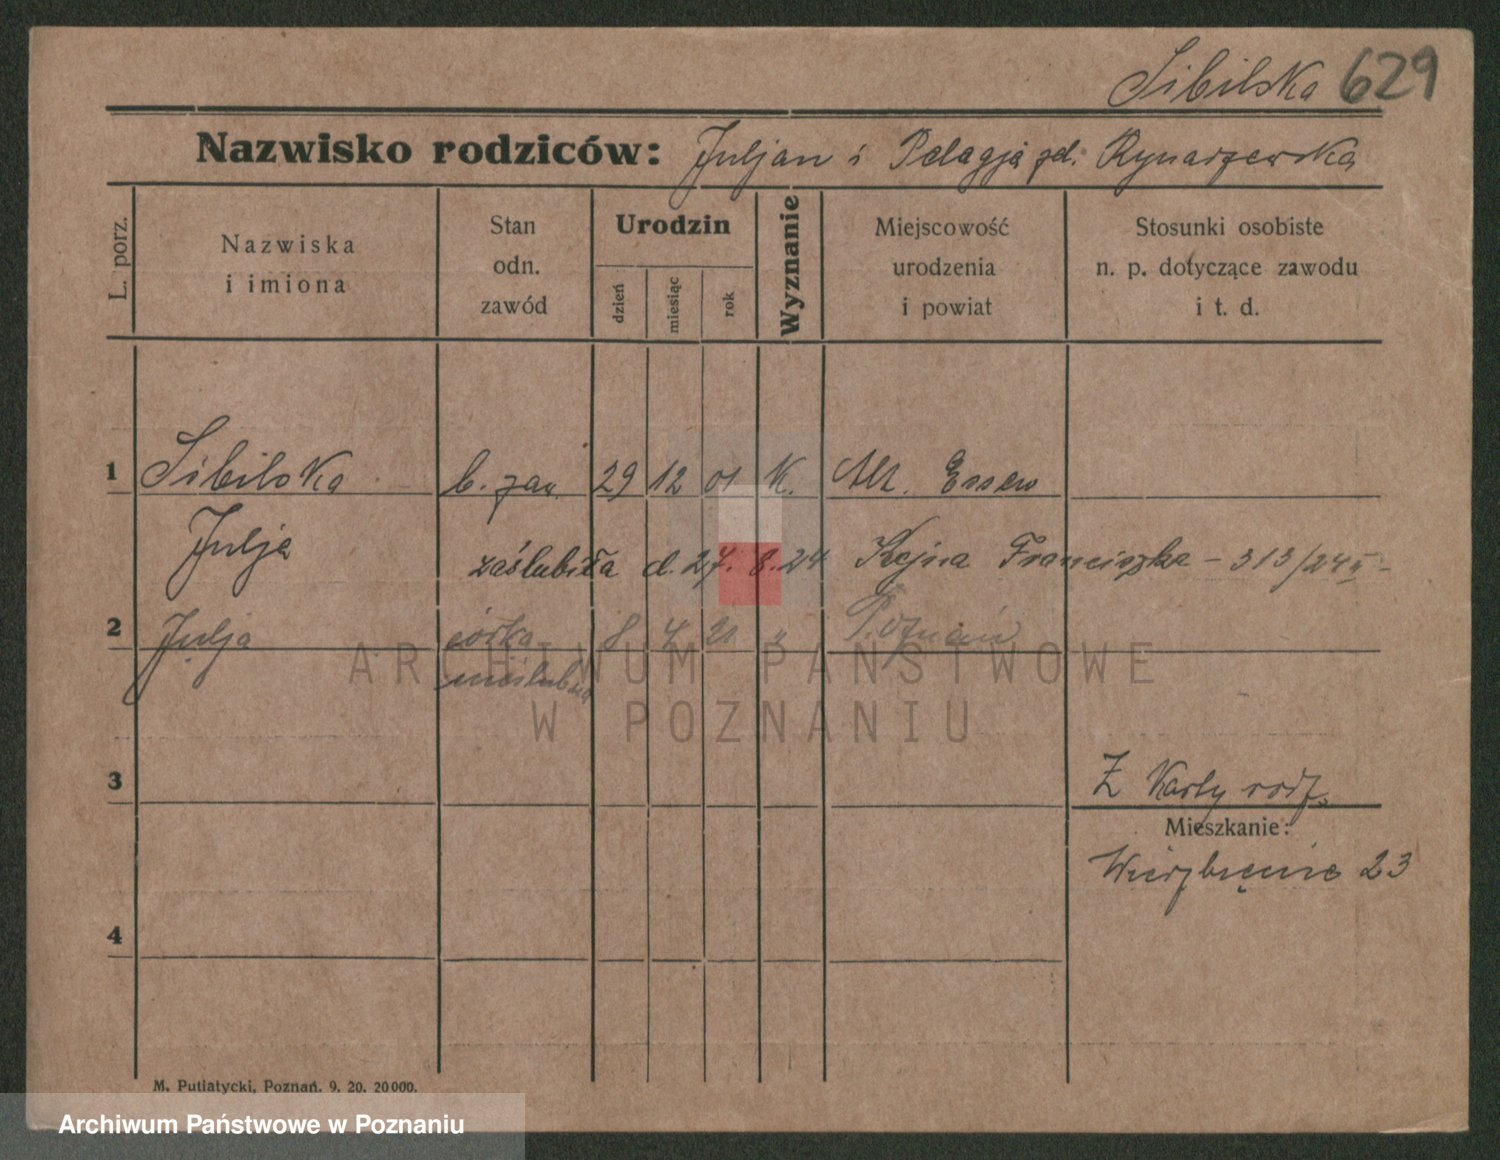 Sibilska 629
Nazwisko rodziców: Juljan i Pelagja zd. Rynarzewska
L. porz.
Nazwiska i imiona
Stan odn. zawód
Urodzin
dzień
miesiąc
rok
Wyznanie
Miejscowość urodzenia i powiat
Stosunki osobiste n. p. dotyczące zawodu i t. d.
1 Sibilska b. zaw. 29 12 01 K. Alt. Essen
Julja
zaślubiła d. 27. 8. 24 Kejna Franciszka - 313/24 II -
2 Julja córka 8 4 21 " Poznań
nieślubna
3
Z Karty rodz.
Mieszkanie:
Wierzbięcice 23
4
M. Putiatycki, Poznań. 9. 20. 20000.
ARCHIWUM PAŃSTWOWE
W POZNANIU
Archiwum Państwowe w Poznaniu